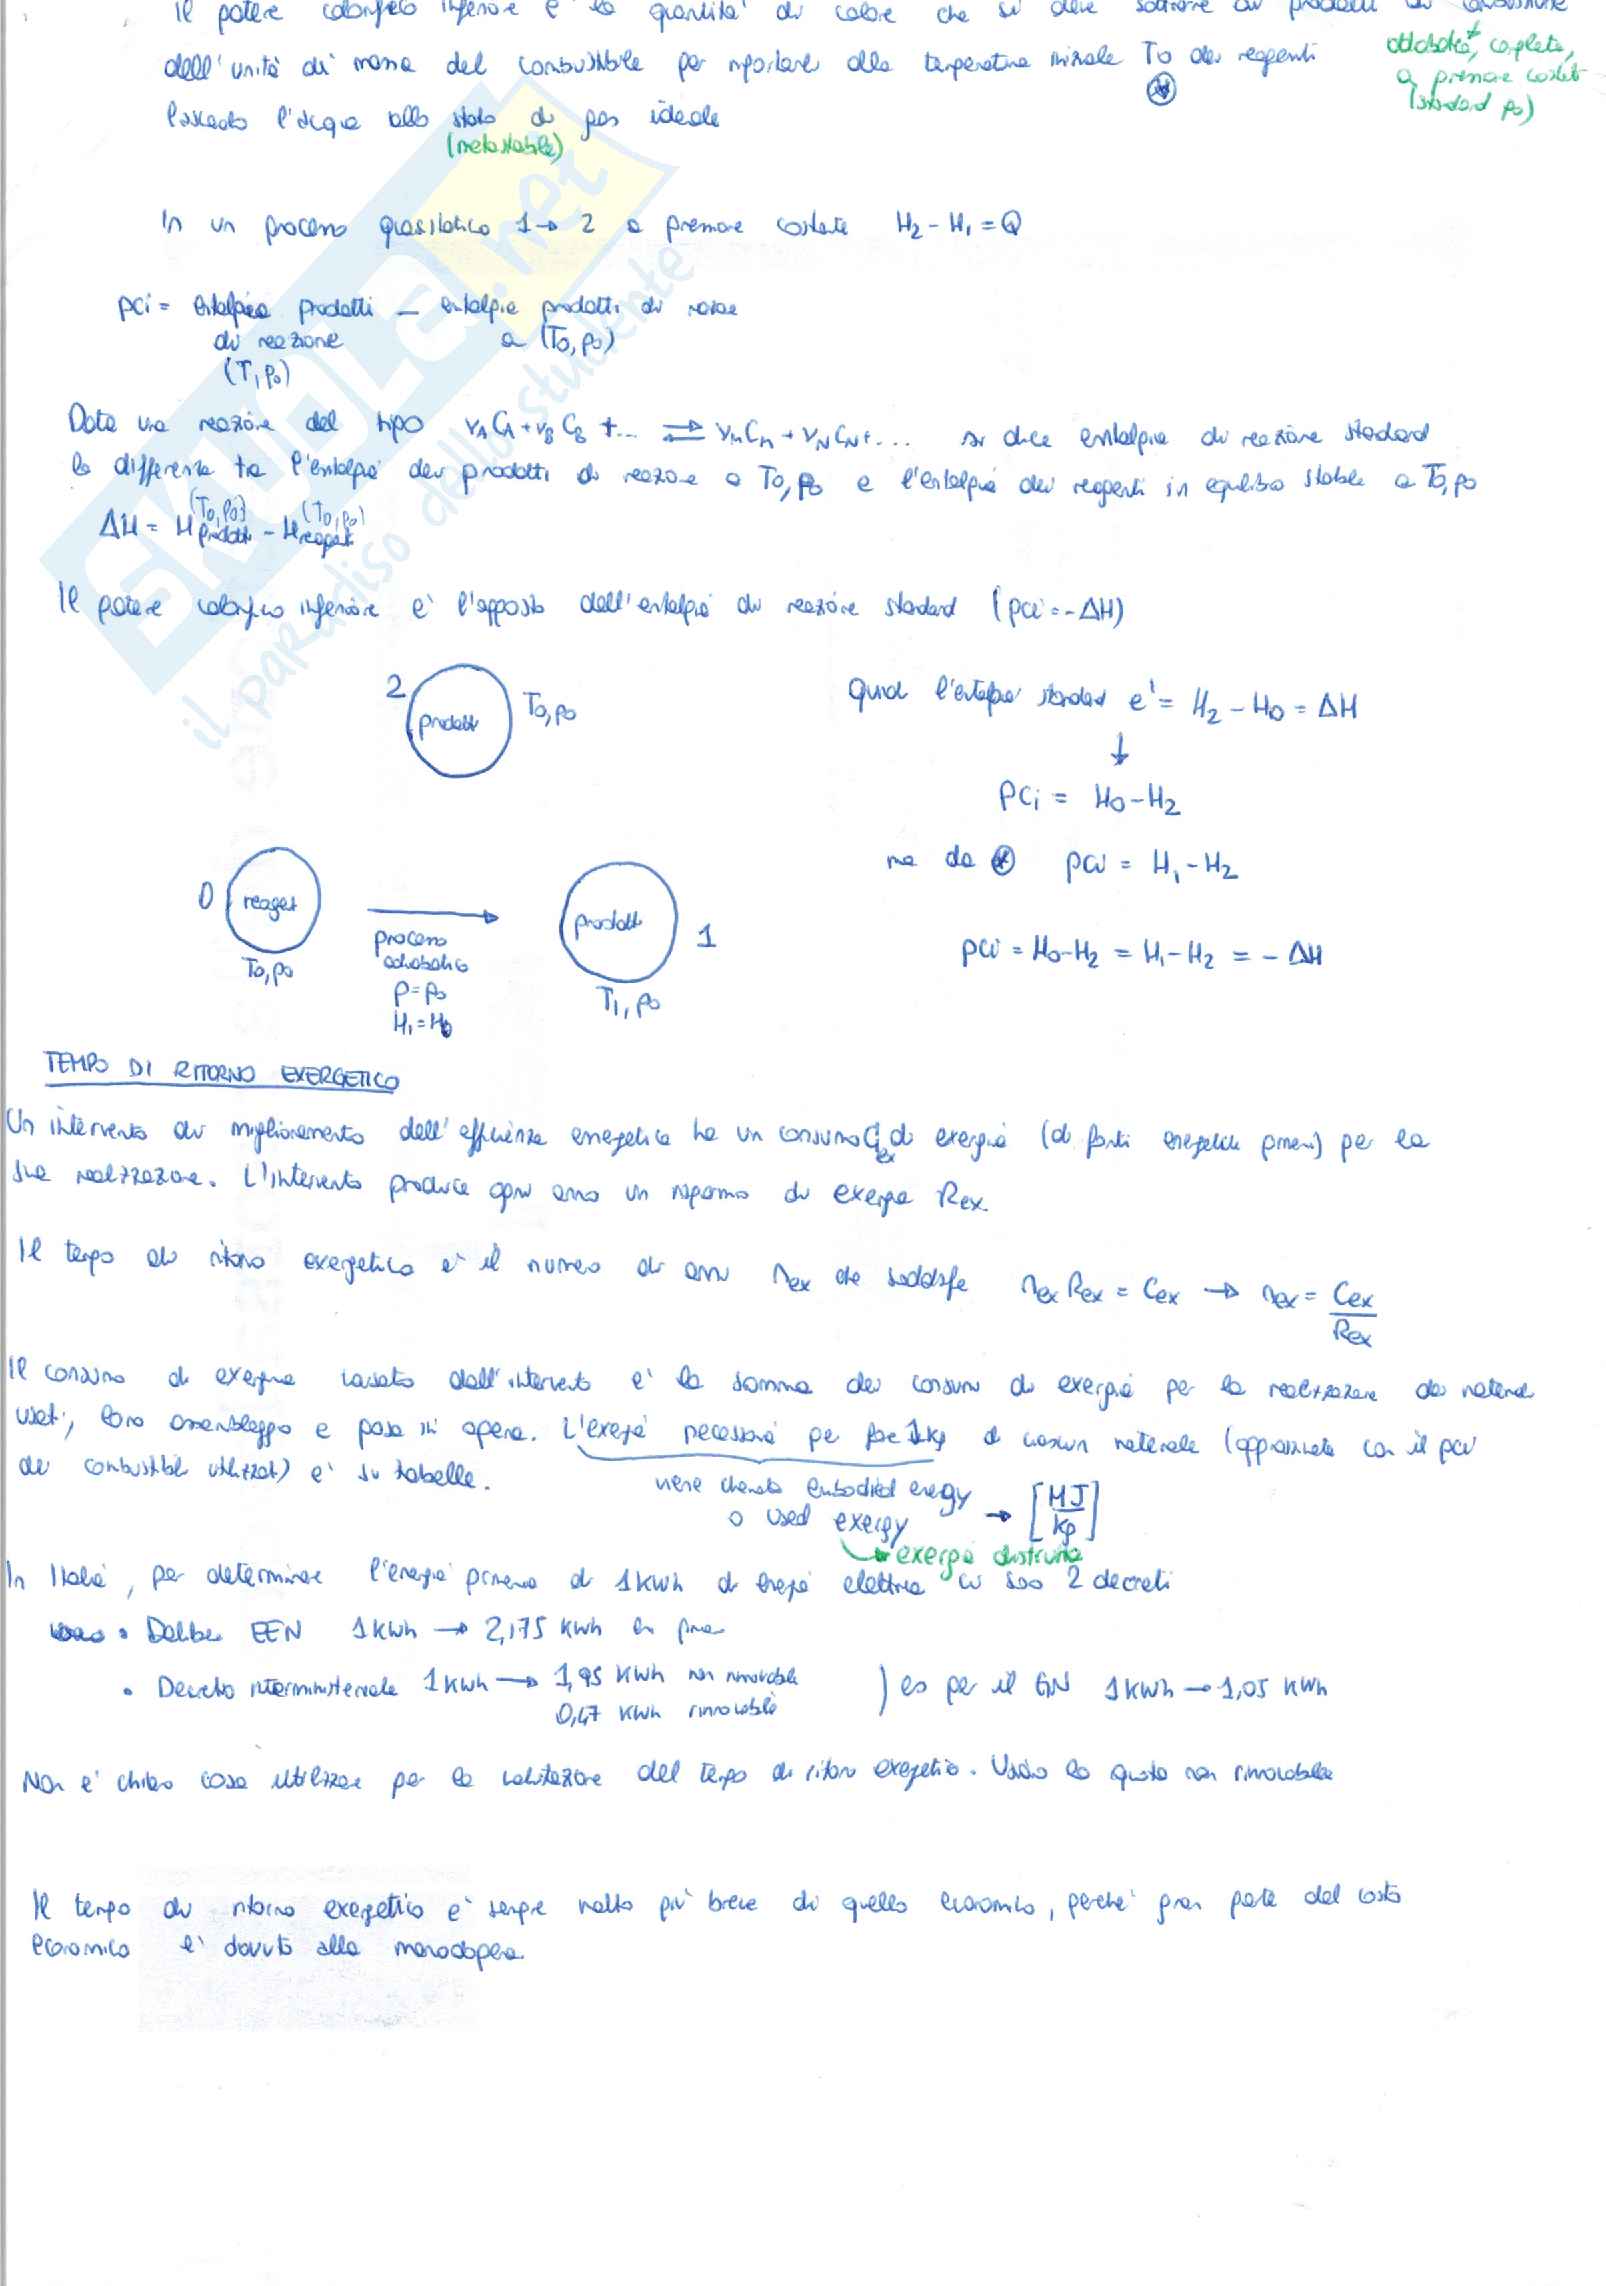 Il potere calorifico inferiore è la quantità di calore che si deve sottrarre ai prodotti di combustione
adiabatica, completa,
dell'unità di massa del combustibile per riportarli alla temperatura iniziale To dei reagenti
a pressione costante
(standard po)
lasciando l'acqua allo stato di gas ideale
(metastabile)
In un processo quasistatico 1→ 2 a pressione costante H2 - H1 = Q
pci = entalpia prodotti — entalpia prodotti di reazione
di reazione a (To, po)
(T1 po)
Data una reazione del tipo νA CA + νB CB + ... ⇌ νM CM + νN CN + ... si dice entalpia di reazione standard
la differenza tra l'entalpia dei prodotti di reazione a To, po e l'entalpia dei reagenti in equilibrio stabile a To, po
ΔH = H prodotti (To, po) - H reagenti (To, po)
Il potere calorifico inferiore è l'opposto dell'entalpia di reazione standard (pci = -ΔH)
2 prodotti To, po
quindi l'entalpia standard è = H2 - Ho = ΔH
↓
pci = Ho - H2
ma da * pci = H1 - H2
0 reagenti To, po
processo
adiabatico
p = po
H1 = Ho
prodotti 1
T1, po
pci = Ho - H2 = H1 - H2 = - ΔH
TEMPO DI RITORNO EXERGETICO
Un intervento di miglioramento dell'efficienza energetica ha un consumo Cex di exergia (di fonti energetiche primarie) per la
sua realizzazione. L'intervento produce ogni anno un risparmio di exergia Rex.
Il tempo di ritorno exergetico è il numero di anni nex che soddisfa nex Rex = Cex → nex = Cex / Rex
Il consumo di exergia causato dall'intervento è la somma dei consumi di exergia per la realizzazione dei materiali
usati, loro assemblaggio e posa in opera. L'exergia necessaria per fare 1 kg di ciascun materiale (approssimata con il pci
dei combustibili utilizzati) è su tabelle.
viene chiamata embodied energy
o used exergy → [MJ/kg]
→ exergia distrutta
In Italia, per determinare l'energia primaria di 1 kWh di energia elettrica ci sono 2 decreti
• Delibera EEN 1 kWh → 2,175 kWh en prim
• Decreto interministeriale 1 kWh → 1,95 kWh non rinnovabile
0,47 kWh rinnovabile
) es per il GN 1 kWh → 1,05 kWh
Non è chiaro cosa utilizzare per la valutazione del tempo di ritorno exergetico. Usiamo la quota non rinnovabile
Il tempo di ritorno exergetico è sempre molto più breve di quello economico, perché gran parte del costo
economico è dovuto alla manodopera
SKUOLA.net
il paradiso dello studente